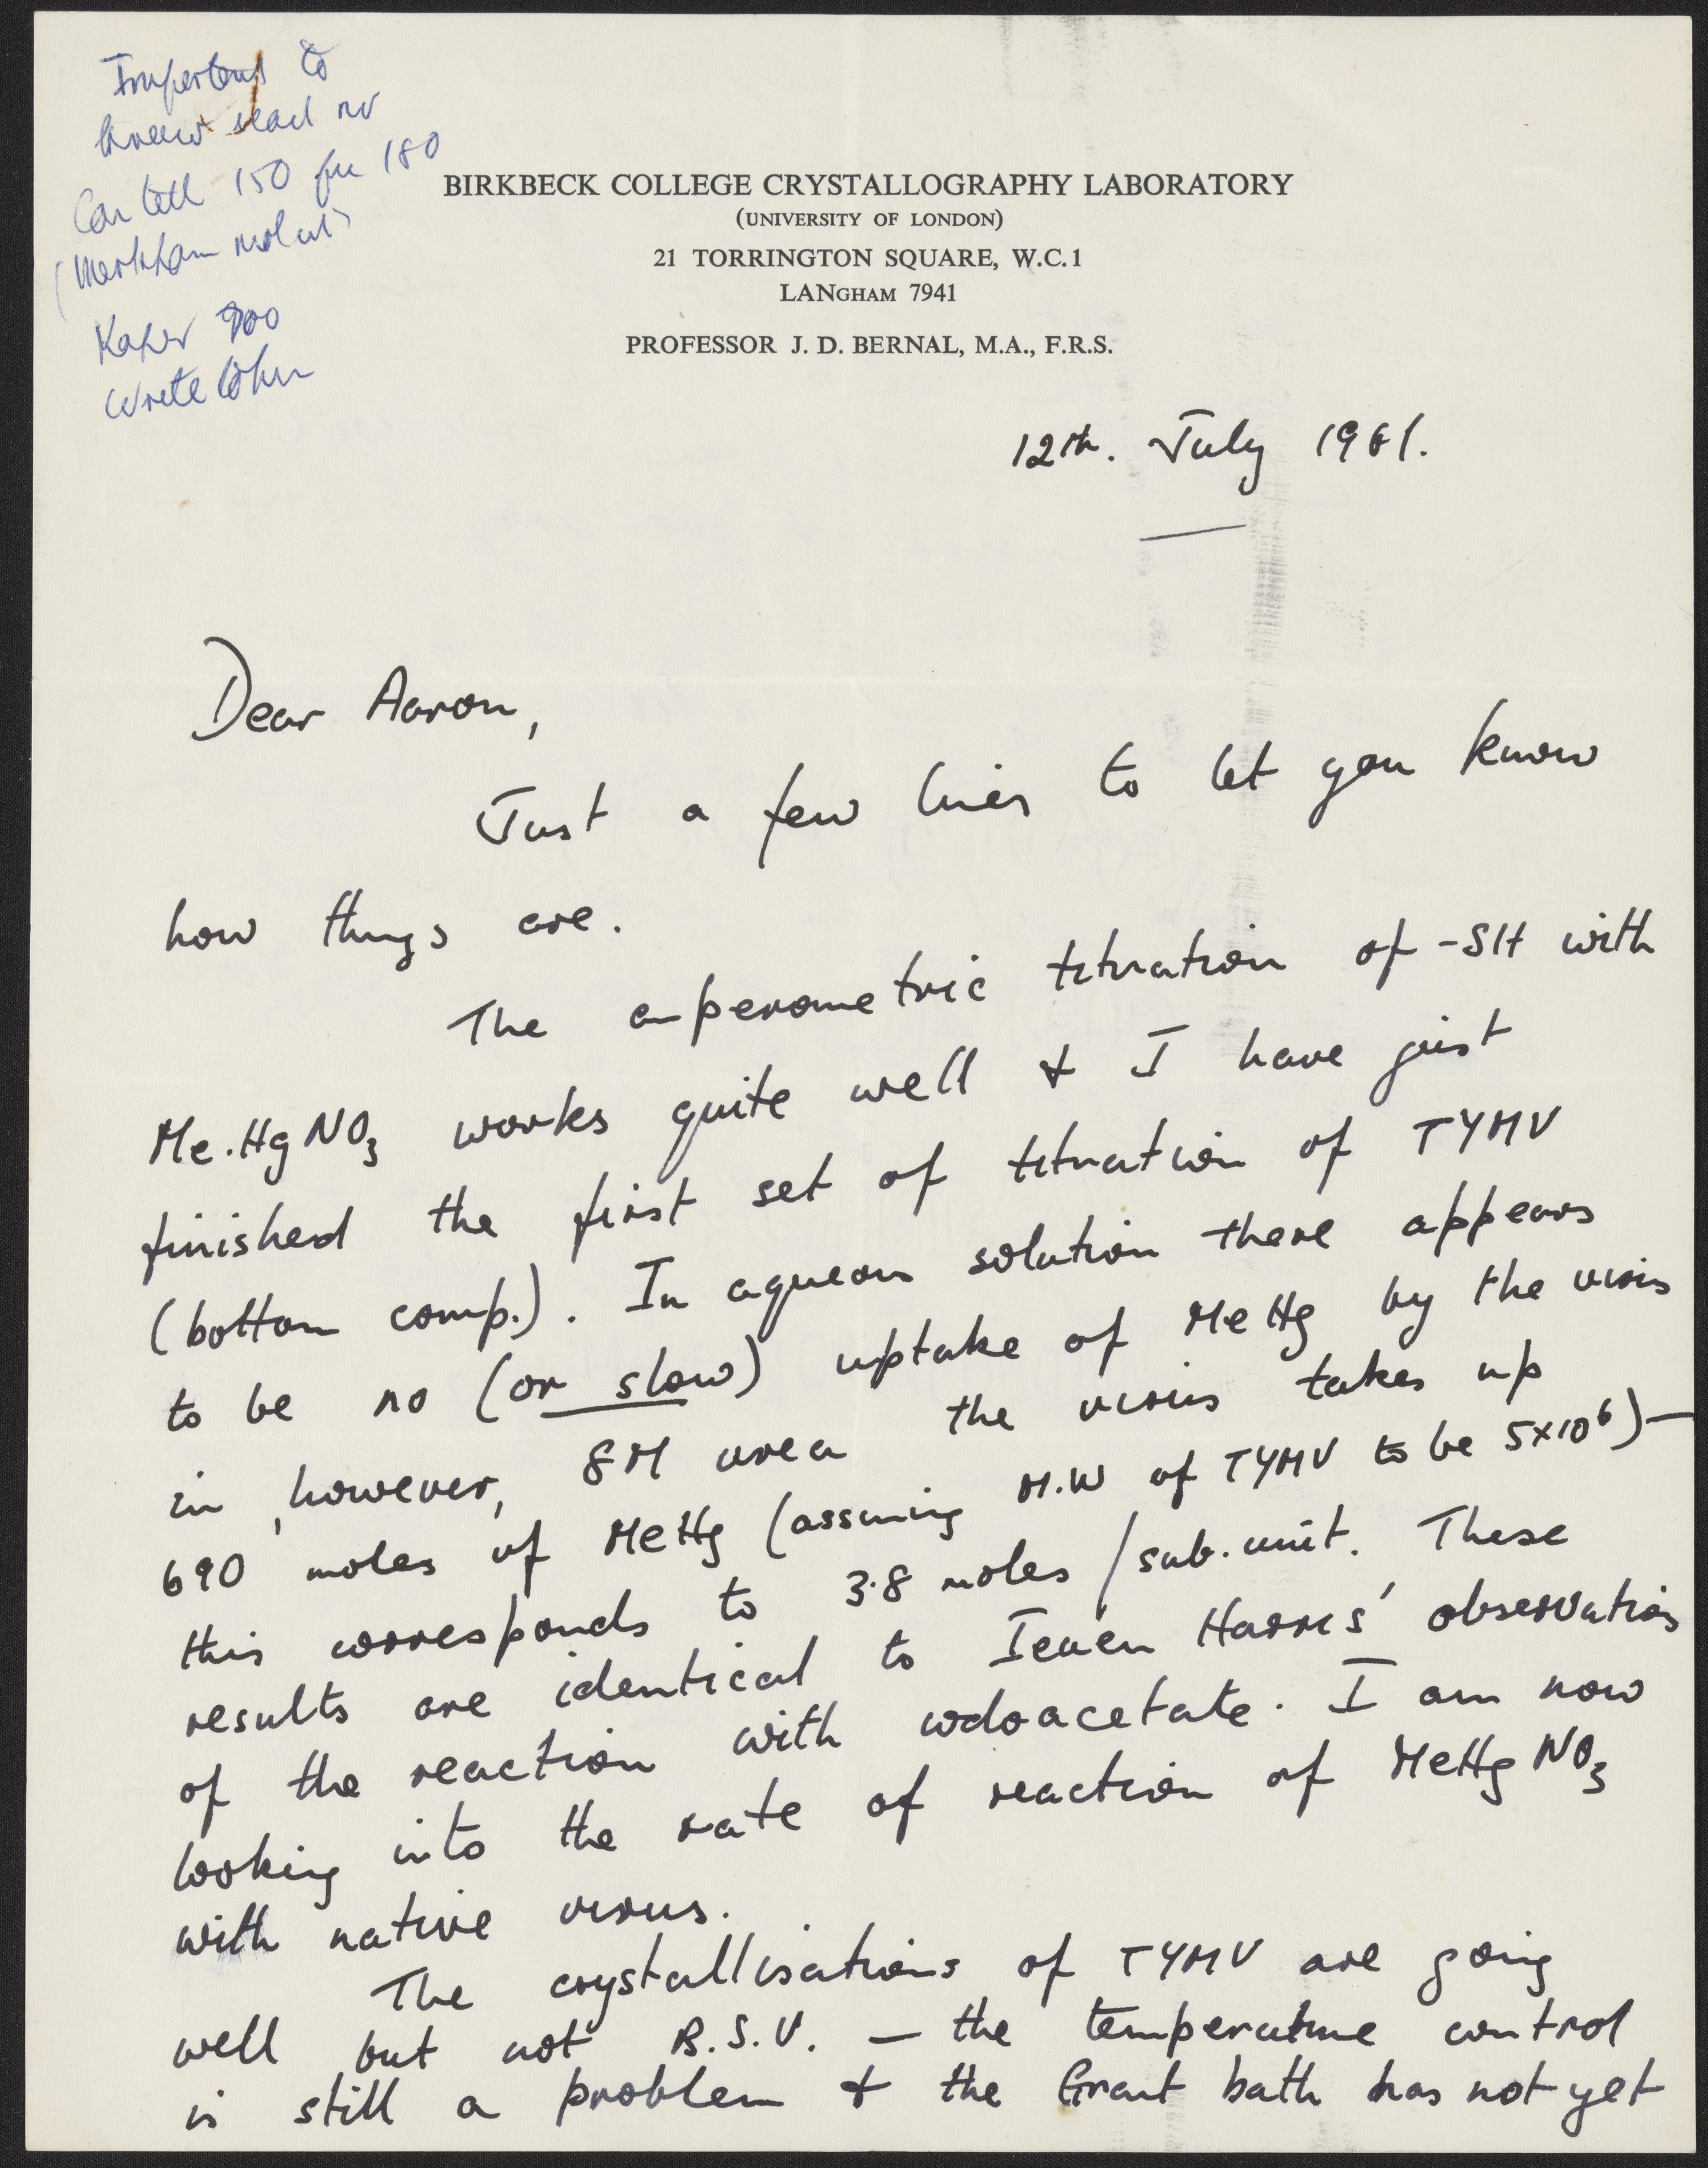 Important to
know
Can tell 150 for 180
(Markham mol wt)
Kaper 900
Write
BIRKBECK COLLEGE CRYSTALLOGRAPHY LABORATORY
(UNIVERSITY OF LONDON)
21 TORRINGTON SQUARE, W.C.1
LANGHAM 7941
PROFESSOR J. D. BERNAL, M.A., F.R.S.
12th. July 1961.
Dear Aaron,
Just a few lines to let you know
how things are.
The amperometric titration of -SH with
Me.HgNO₃ works quite well & I have just
finished the first set of titration of TYMV
(bottom comp.). In aqueous solution there appears
to be no (or slow) uptake of MeHg by the virus
in, however, 8M urea the virus takes up
690 moles of MeHg (assuming M.W of TYMV to be 5x10⁶) —
this corresponds to 3.8 moles/sub.unit. These
results are identical to Ieuen Harris' observations
of the reaction with iodoacetate. I am now
looking into the rate of reaction of MeHgNO₃
with native virus.
The crystallisations of TYMV are going
well but not B.S.V. — the temperature control
is still a problem & the Grant bath has not yet